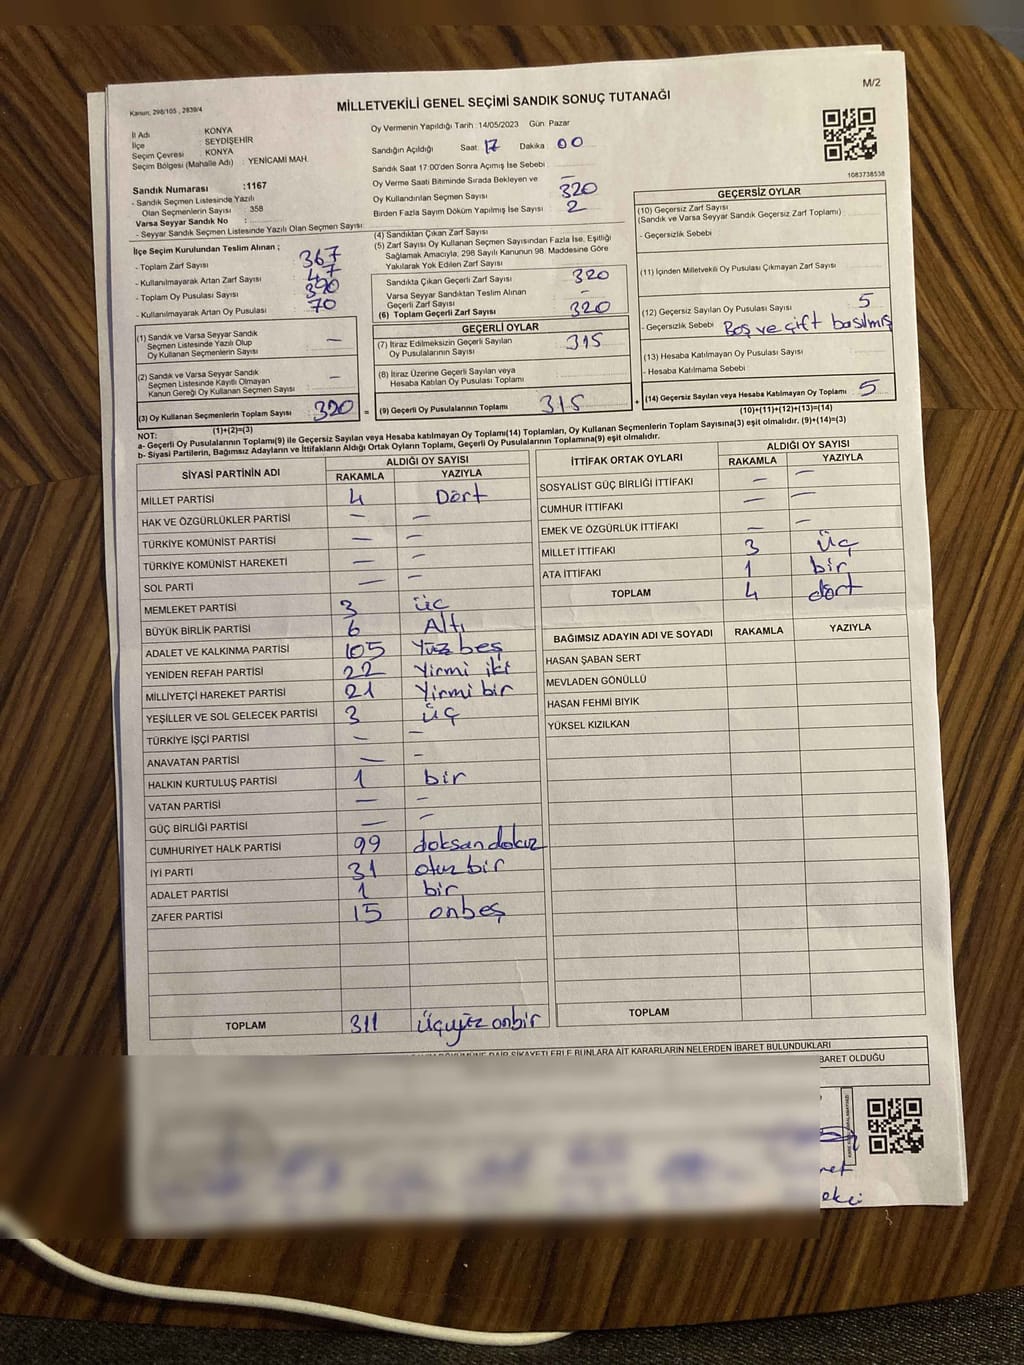 M/2
Kanun; 298/105 , 2839/4
MİLLETVEKİLİ GENEL SEÇİMİ SANDIK SONUÇ TUTANAĞI
İl Adı : KONYA
İlçe SEYDİŞEHİR
Seçim Çevresi KONYA
Seçim Bölgesi (Mahalle Adı) : YENİCAMİ MAH.
Sandık Numarası :1167
- Sandık Seçmen Listesinde Yazılı
Olan Seçmenlerin Sayısı : 358
Varsa Seyyar Sandık No :
- Seyyar Sandık Seçmen Listesinde Yazılı Olan Seçmen Sayısı:
Oy Vermenin Yapıldığı Tarih :14/05/2023 Gün Pazar
Sandığın Açıldığı Saat 17 Dakika 00
Sandık Saat 17:00'den Sonra Açımış İse Sebebi
Oy Verme Saati Bitiminde Sırada Bekleyen ve —
Oy Kullandırılan Seçmen Sayısı 320
Birden Fazla Sayım Döküm Yapılmış İse Sayısı 2
1083738538
İlçe Seçim Kurulundan Teslim Alınan ;
- Toplam Zarf Sayısı 367
- Kullanılmayarak Artan Zarf Sayısı 47
- Toplam Oy Pusulası Sayısı 390
- Kullanılmayarak Artan Oy Pusulası 70
(1) Sandık ve Varsa Seyyar Sandık
Seçmen Listesinde Yazılı Olup
Oy Kullanan Seçmenlerin Sayısı —
(2) Sandık ve Varsa Seyyar Sandık
Seçmen Listesinde Kayıtlı Olmayan
Kanun Gereği Oy Kullanan Seçmen Sayısı —
(3) Oy Kullanan Seçmenlerin Toplam Sayısı 320
(1)+(2)=(3)
(4) Sandıktan Çıkan Zarf Sayısı
(5) Zarf Sayısı Oy Kullanan Seçmen Sayısından Fazla İse, Eşitliği
Sağlamak Amacıyla, 298 Sayılı Kanunun 98. Maddesine Göre
Yakılarak Yok Edilen Zarf Sayısı
Sandıkta Çıkan Geçerli Zarf Sayısı 320
Varsa Seyyar Sandıktan Teslim Alınan
Geçerli Zarf Sayısı —
(6) Toplam Geçerli Zarf Sayısı 320
GEÇERLİ OYLAR
(7) İtiraz Edilmeksizin Geçerli Sayılan
Oy Pusulalarının Sayısı 315
(8) İtiraz Üzerine Geçerli Sayılan veya
Hesaba Katılan Oy Pusulası Toplamı
= (9) Geçerli Oy Pusulalarının Toplamı 315
GEÇERSİZ OYLAR
(10) Geçersiz Zarf Sayısı
(Sandık ve Varsa Seyyar Sandık Geçersiz Zarf Toplamı)
- Geçersizlik Sebebi
(11) İçinden Milletvekili Oy Pusulası Çıkmayan Zarf Sayısı
(12) Geçersiz Sayılan Oy Pusulası Sayısı 5
- Geçersizlik Sebebi Boş ve çift basılmış
(13) Hesaba Katılmayan Oy Pusulası Sayısı
- Hesaba Katılmama Sebebi
+ (14) Geçersiz Sayılan veya Hesaba Katılmayan Oy Toplamı 5
(10)+(11)+(12)+(13)=(14)
NOT:
a- Geçerli Oy Pusulaları Toplamı(9) ile Geçersiz Sayılan veya Hesaba katılmayan Oy Toplamı(14) Toplamları, Oy Kullanan Seçmenlerin Toplam Sayısına(3) eşit olmalıdır. (9)+(14)=(3)
b- Siyasi Partilerin, Bağımsız Adayların ve İttifakların Aldığı Ortak Oyların Toplamı, Geçerli Oy Pusulalarının Toplamına(9) eşit olmalıdır.
SİYASİ PARTİNİN ADI ALDIĞI OY SAYISI
RAKAMLA YAZIYLA
MİLLET PARTİSİ 4 Dört
HAK VE ÖZGÜRLÜKLER PARTİSİ — —
TÜRKİYE KOMÜNİST PARTİSİ — —
TÜRKİYE KOMÜNİST HAREKETİ — —
SOL PARTİ — —
MEMLEKET PARTİSİ 3 üç
BÜYÜK BİRLİK PARTİSİ 6 Altı
ADALET VE KALKINMA PARTİSİ 105 Yüz beş
YENİDEN REFAH PARTİSİ 22 Yirmi iki
MİLLİYETÇİ HAREKET PARTİSİ 21 Yirmi bir
YEŞİLLER VE SOL GELECEK PARTİSİ 3 üç
TÜRKİYE İŞÇİ PARTİSİ — —
ANAVATAN PARTİSİ — —
HALKIN KURTULUŞ PARTİSİ 1 bir
VATAN PARTİSİ — —
GÜÇ BİRLİĞİ PARTİSİ — —
CUMHURİYET HALK PARTİSİ 99 doksan dokuz
İYİ PARTİ 31 otuz bir
ADALET PARTİSİ 1 bir
ZAFER PARTİSİ 15 onbeş
TOPLAM 311 üçyüz onbir
İTTİFAK ORTAK OYLARI ALDIĞI OY SAYISI
RAKAMLA YAZIYLA
SOSYALİST GÜÇ BİRLİĞİ İTTİFAKI — —
CUMHUR İTTİFAKI — —
EMEK VE ÖZGÜRLÜK İTTİFAKI — —
MİLLET İTTİFAKI 3 üç
ATA İTTİFAKI 1 bir
TOPLAM 4 dört
BAĞIMSIZ ADAYIN ADI VE SOYADI RAKAMLA YAZIYLA
HASAN ŞABAN SERT
MEVLADEN GÖNÜLLÜ
HASAN FEHMİ BIYIK
YÜKSEL KIZILKAN
TOPLAM
ŞİKAYETLERLE BUNLARA AİT KARARLARIN NELERDEN İBARET BULUNDUKLARI
BARET OLDUĞU